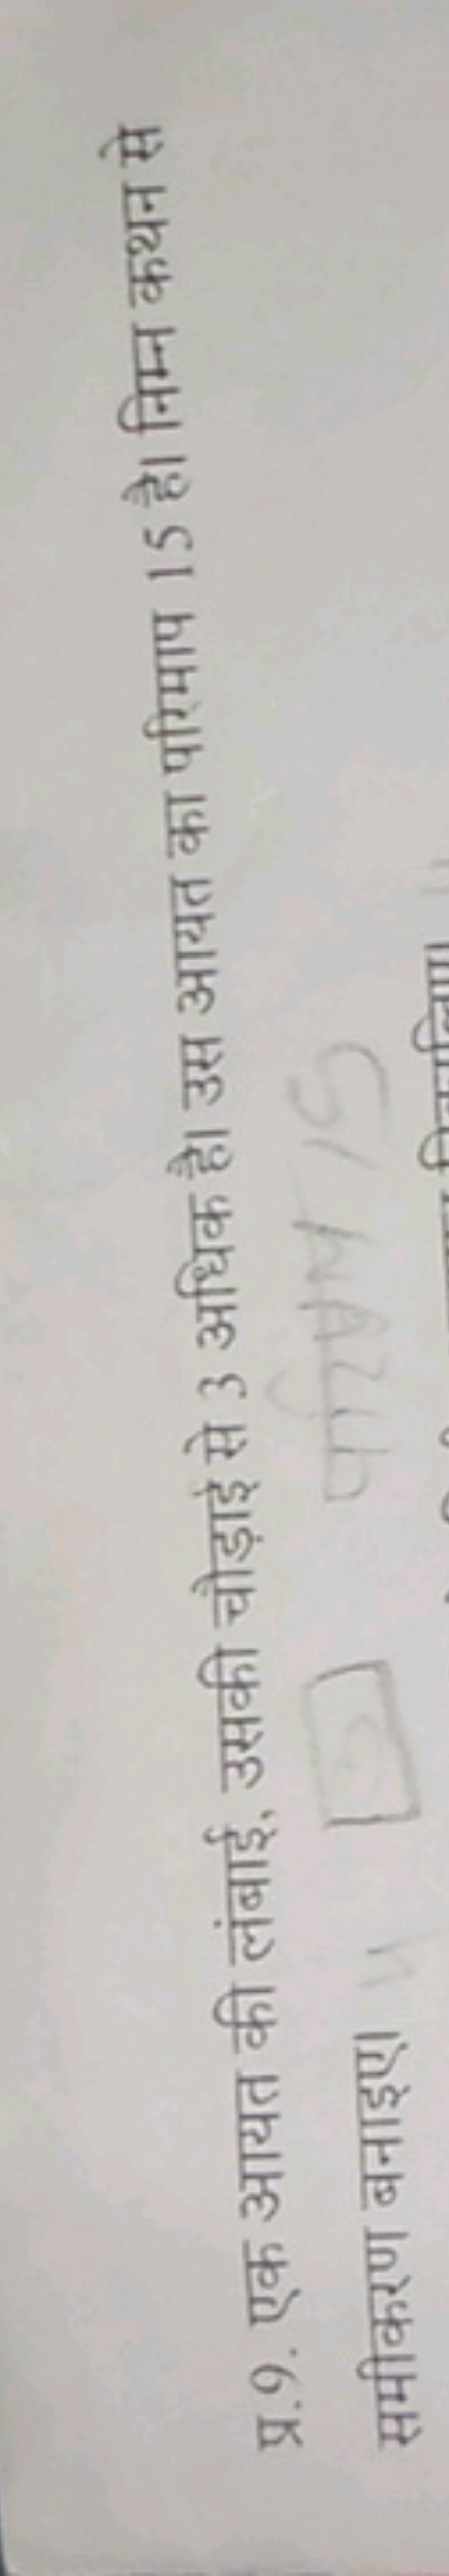 प्र.9. एक आयत की लंबाई, उसकी चौड़ाई से 3 अधिक है। उस आयत का परिमाप 15 है। निम्न कथन से
समीकरण बनाइए।